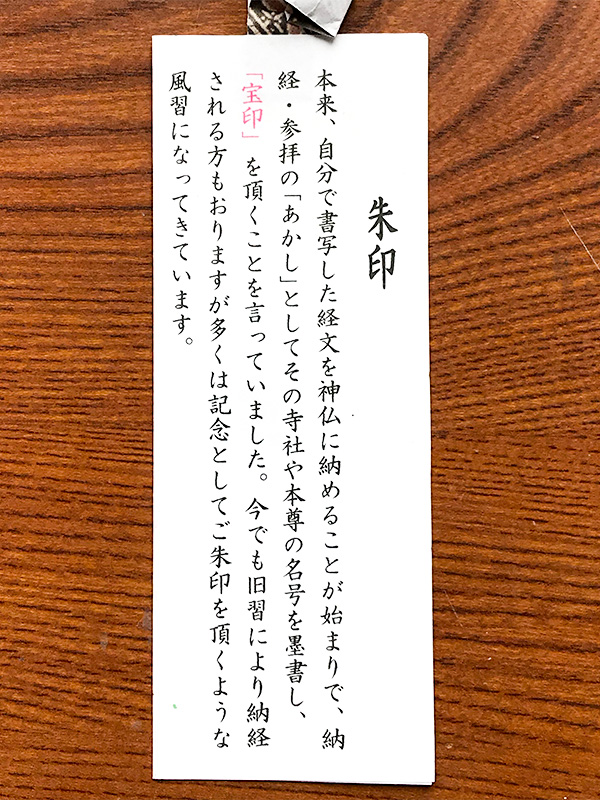 朱印
本来、自分で書写した経文を神仏に納めることが始まりで、納
経・参拝の「あかし」としてその寺社や本尊の名号を墨書し、
「宝印」を頂くことを言っていました。今でも旧習により納経
される方もおりますが多くは記念としてご朱印を頂くような
風習になってきています。